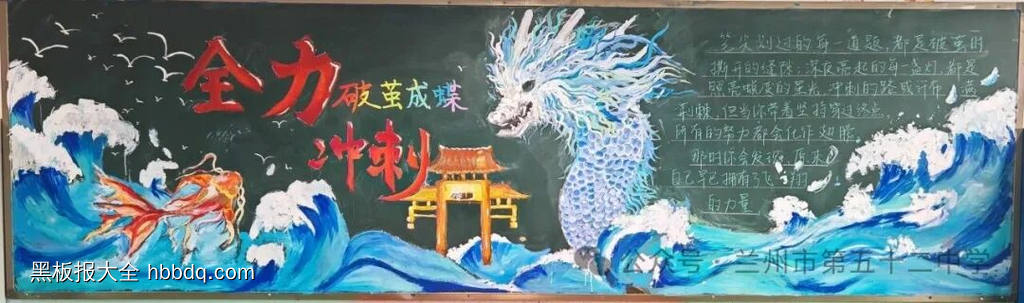 全力
破茧成蝶
冲刺
笔尖划过的每一道题,都是破茧时
撕开的缝隙。深夜亮起的每一盏灯,都是
照亮蜕变的星光。冲刺的路或许布满
荆棘,但当你带着坚持穿过终点,
所有的努力都会化作翅膀
那时你会发现,原来
自己早已拥有飞翔
的力量
黑板报大全 hbbdq.com
公众号 兰州市第五十二中学